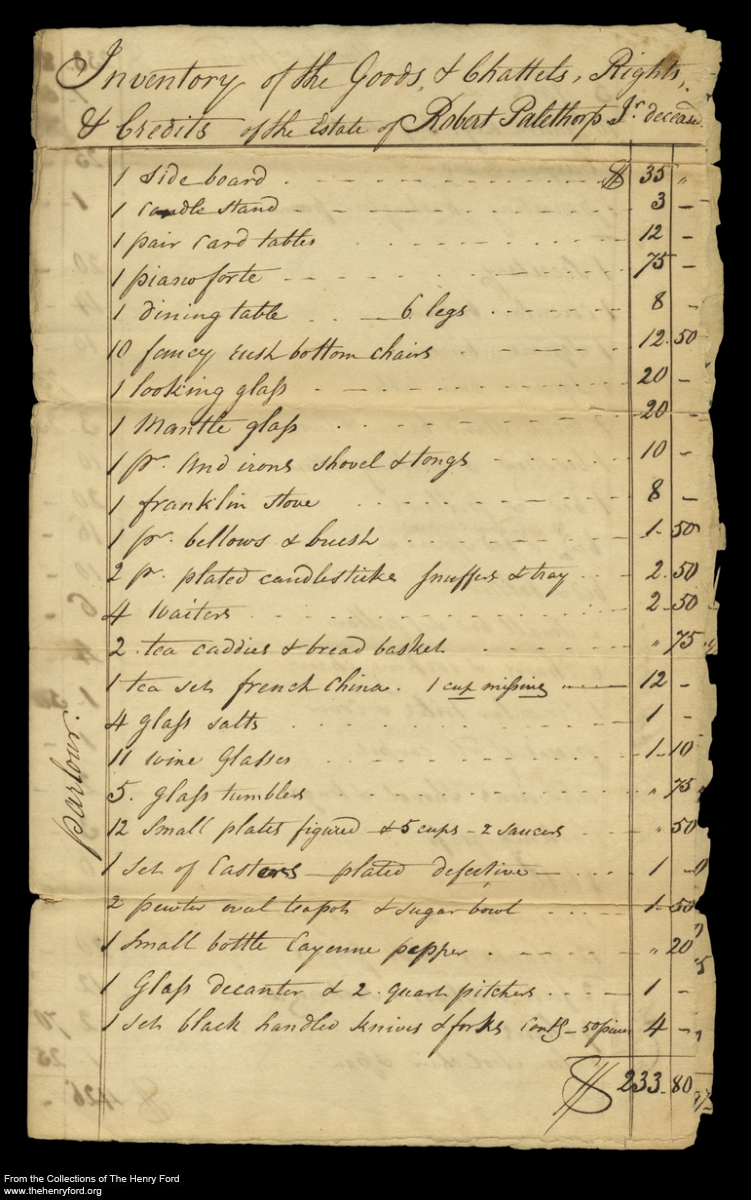 Inventory of the Goods, & Chattels, Rights,
& Credits of the Estate of Robert Palethorp Jr. deceasd.
1 side board $ 35 "
1 candle stand 3 -
1 pair card tables 12 -
1 piano forte 75 -
1 dining table 6 legs 8 -
10 fancy rush bottom chairs 12.50
1 looking glass 20 -
1 Mantle glass 20 -
1 pr. And irons shovel & tongs 10 -
1 franklin stove 8 -
1 pr. bellows & brush 1.50
2 pr. plated candlesticks snuffers & tray 2.50
4 waiters 2.50
2 tea caddies & bread basket " 75
1 tea set french China. 1 cup missing 12 -
4 glass salts 1 -
11 wine Glasses 1.10
5. glass tumblers " 75
12 small plates figured & 5 cups - 2 saucers " 50
1 set of Casters - plated defective - 1 -
2 pewter oval teapots & sugar bowl 1.50
1 small bottle Cayenne pepper " 20
1 Glass decanter & 2 quart pitchers 1 -
1 set black handled knives & forks contg - 50 pieces 4 -
$ 233.80
parlour.
From the Collections of The Henry Ford
www.thehenryford.org